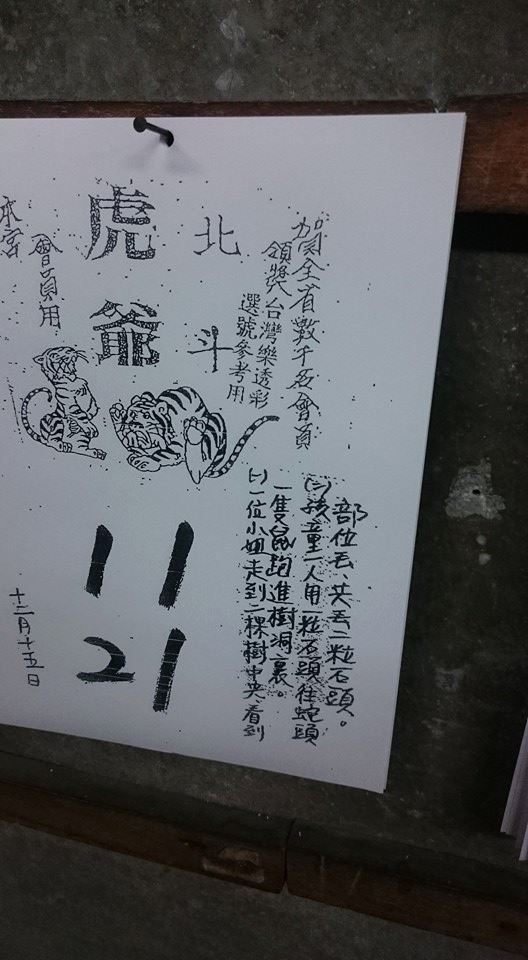 賀全省數千名會員
領獎台灣樂透彩
選號參考用
北斗
虎爺
會員用
本宮
㈠一位小姐走到二棵樹中央,看到
一隻鼠跑進樹洞裏。
㈡孩童一人用一粒石頭往蛇頭
部位丟、共丟二粒石頭。
11
21
十二月十五日